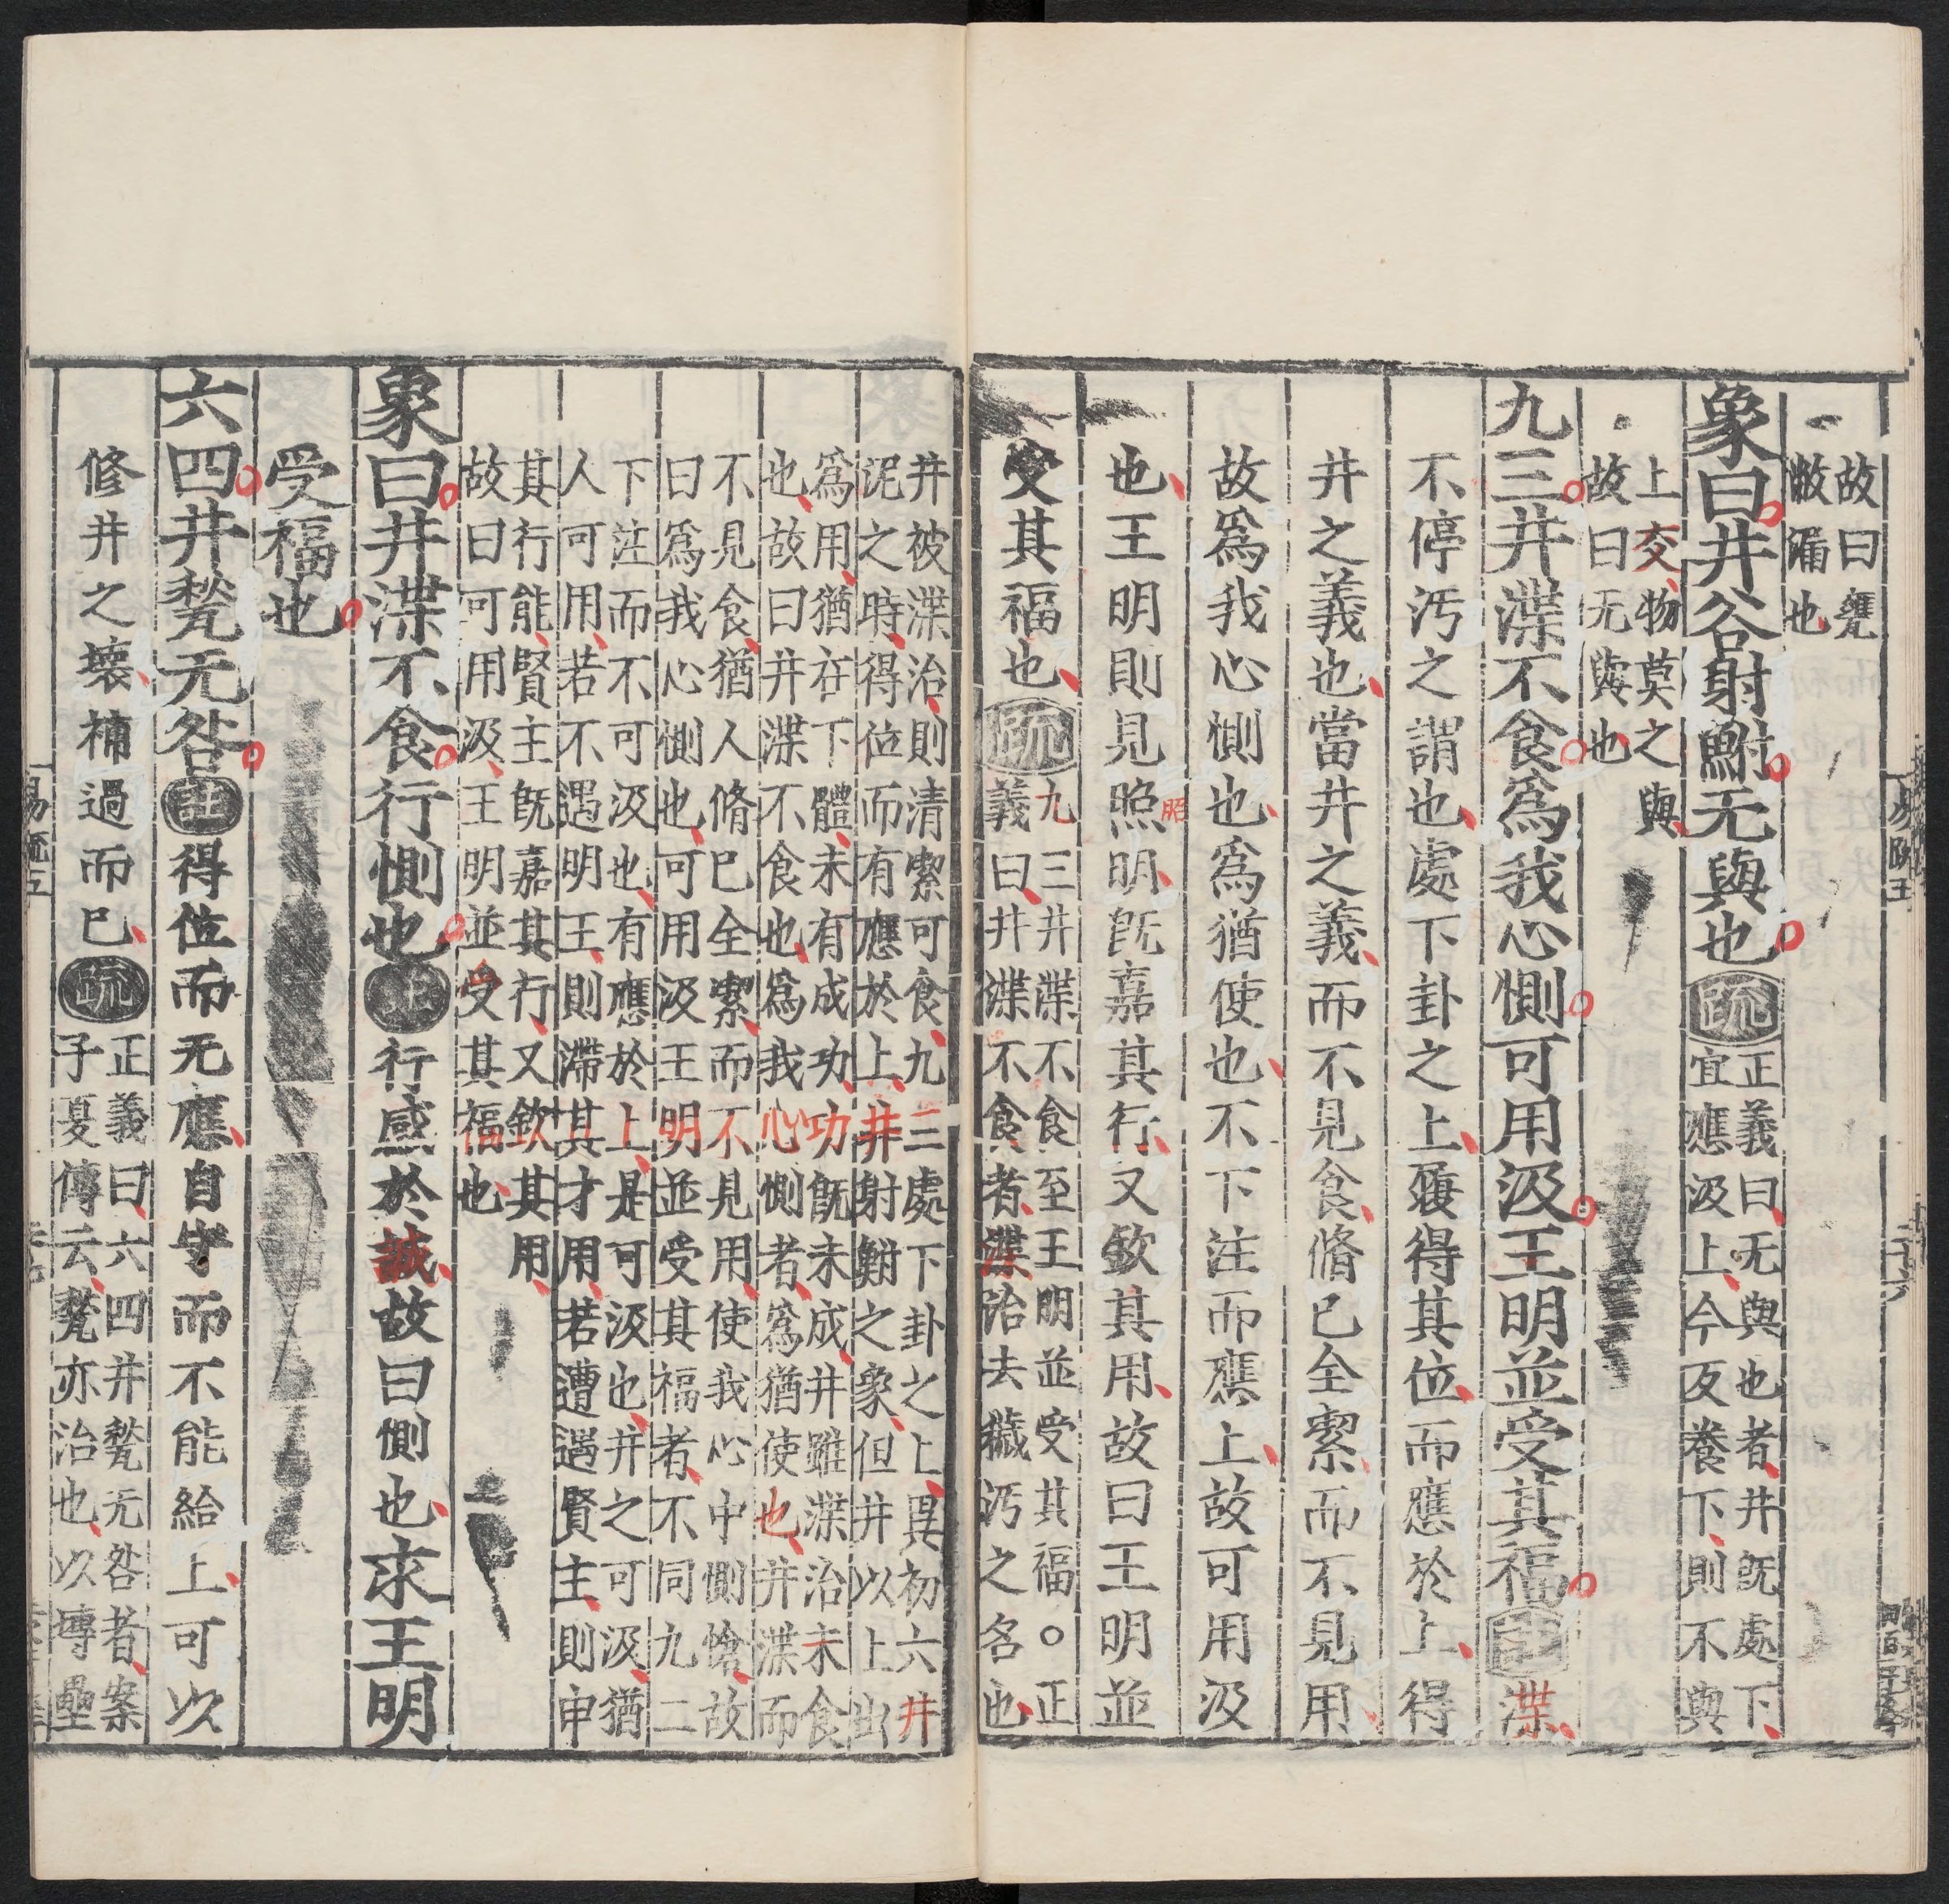 故曰甕
敝漏也
象曰井谷射鮒无與也疏
正義曰无與也者井旣處下
宜應汲上今反養下則不與
上交物莫之與
故曰无與也
九三井渫不食爲我心惻可用汲王明並受其福註渫
不停汚之謂也處下卦之上履得其位而應於上得
井之義也當井之義而不見食脩已全㓗而不見用
故爲我心惻也爲猶使也不下注而應上故可用汲
也王明則見照明旣嘉其行又欽其用故曰王明並
昭
受其福也疏
九三井渫不食至王明並受其福○正
義曰井渫不食者渫治去穢汚之名也
井被渫治則清㓗可食九三處下卦之上異初六井
泥之時得位而有應於上井射鮒之象但井以上出
爲用猶在下體未有成功功旣未成井雖渫治未食
也故曰井渫不食也爲我心惻者爲猶使也井渫而
不見食猶人脩已全㓗而不見用使我心中惻愴故
曰爲我心惻也可用汲王明並受其福者不同九二
下注而不可汲也有應於上是可汲也井之可汲猶
人可用若不遇明王則滯其才用若遭遇賢主則申
其行能賢主旣嘉其行又欽其用
故曰可用汲王明並受其福也
象曰井渫不食行惻也註行感於誠故曰惻也求王明
受福也
六四井甃无咎註得位而无應自守而不能給上可以
修井之壞補過而已疏
正義曰六四井甃无咎者案
子夏傳云甃亦治也以塼壘